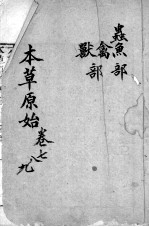 蟲魚部
禽部
獸部
本草原始卷七八九